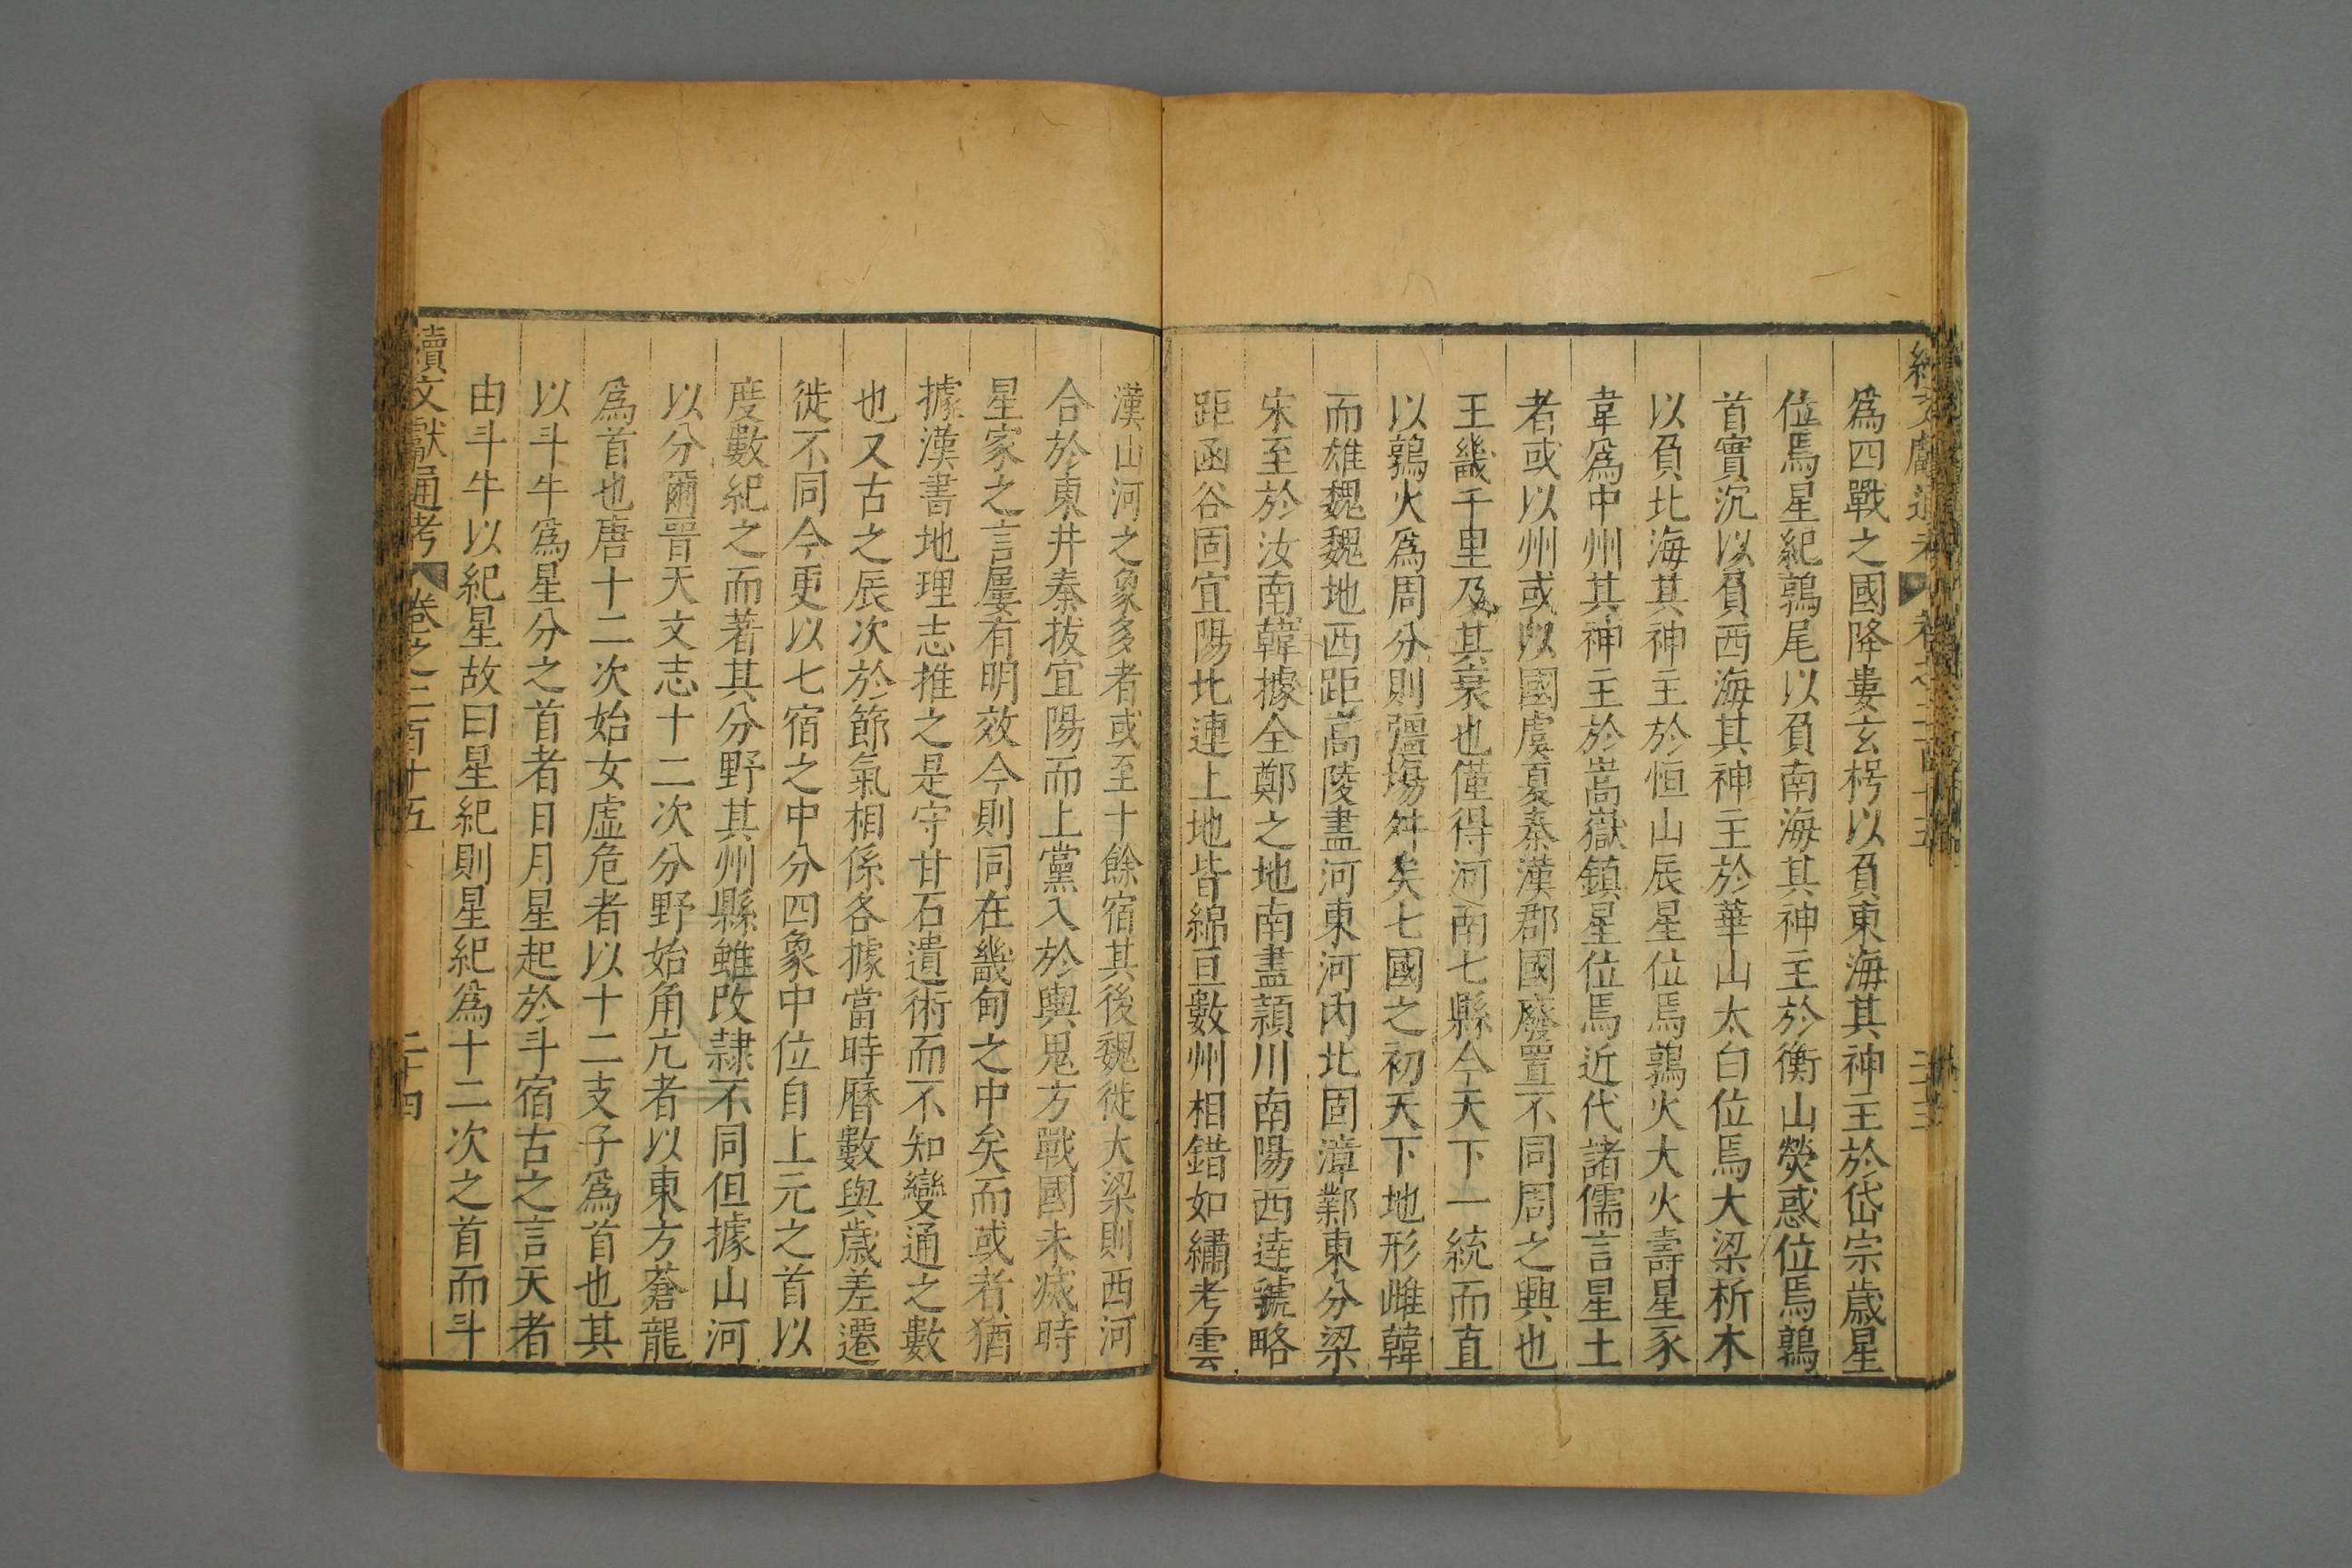 爲四戰之國降婁玄枵以負東海其神主於岱宗歲星
位焉星紀鶉尾以負南海其神主於衡山熒惑位焉鶉
首實沉以負西海其神主於華山太白位焉大梁析木
以負北海其神主於恒山辰星位焉鶉火大火壽星豕
韋爲中州其神主於嵩嶽鎮星位焉近代諸儒言星土
者或以州或以國虞夏秦漢郡國廢置不同周之興也
王畿千里及其衰也僅得河南七縣今天下一統而直
以鶉火爲周分則疆場舛矣七國之初天下地形雌韓
而雄魏魏地西距高陵盡河東河內北固漳鄴東分梁
宋至於汝南韓據全鄭之地南盡潁川南陽西達虢略
距函谷固宜陽北連上地皆綿亘數州相錯如繡考雲
漢山河之象多者或至十餘宿其後魏徙大梁則西河
合於東井秦拔宜陽而上黨入於輿鬼方戰國未滅時
星家之言屢有明效今則同在畿甸之中矣而或者猶
據漢書地理志推之是守甘石遺術而不知變通之數
也又古之辰次於節氣相係各據當時曆數與歲差遷
徙不同今更以七宿之中分四象中位自上元之首以
度數紀之而著其分野其州縣雖改隷不同但據山河
以分爾晉天文志十二次分野始角亢者以東方蒼龍
爲首也唐十二次始女虛危者以十二支子爲首也其
以斗牛爲星分之首者日月星起於斗宿古之言天者
由斗牛以紀星故曰星紀則星紀爲十二次之首而斗
續文獻通考 卷之二百十五 二十四